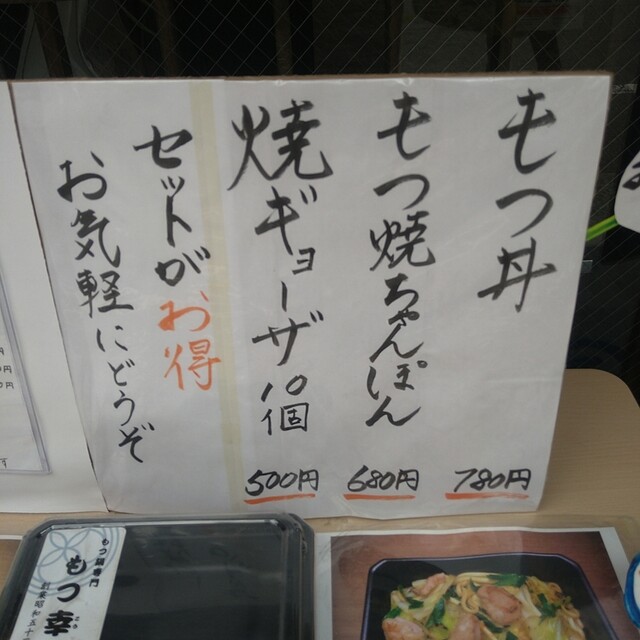 もつ丼
780円
もつ焼ちゃんぽん
680円
焼ギョーザ10個
500円
セットがお得
お気軽にどうぞ
もつ幸